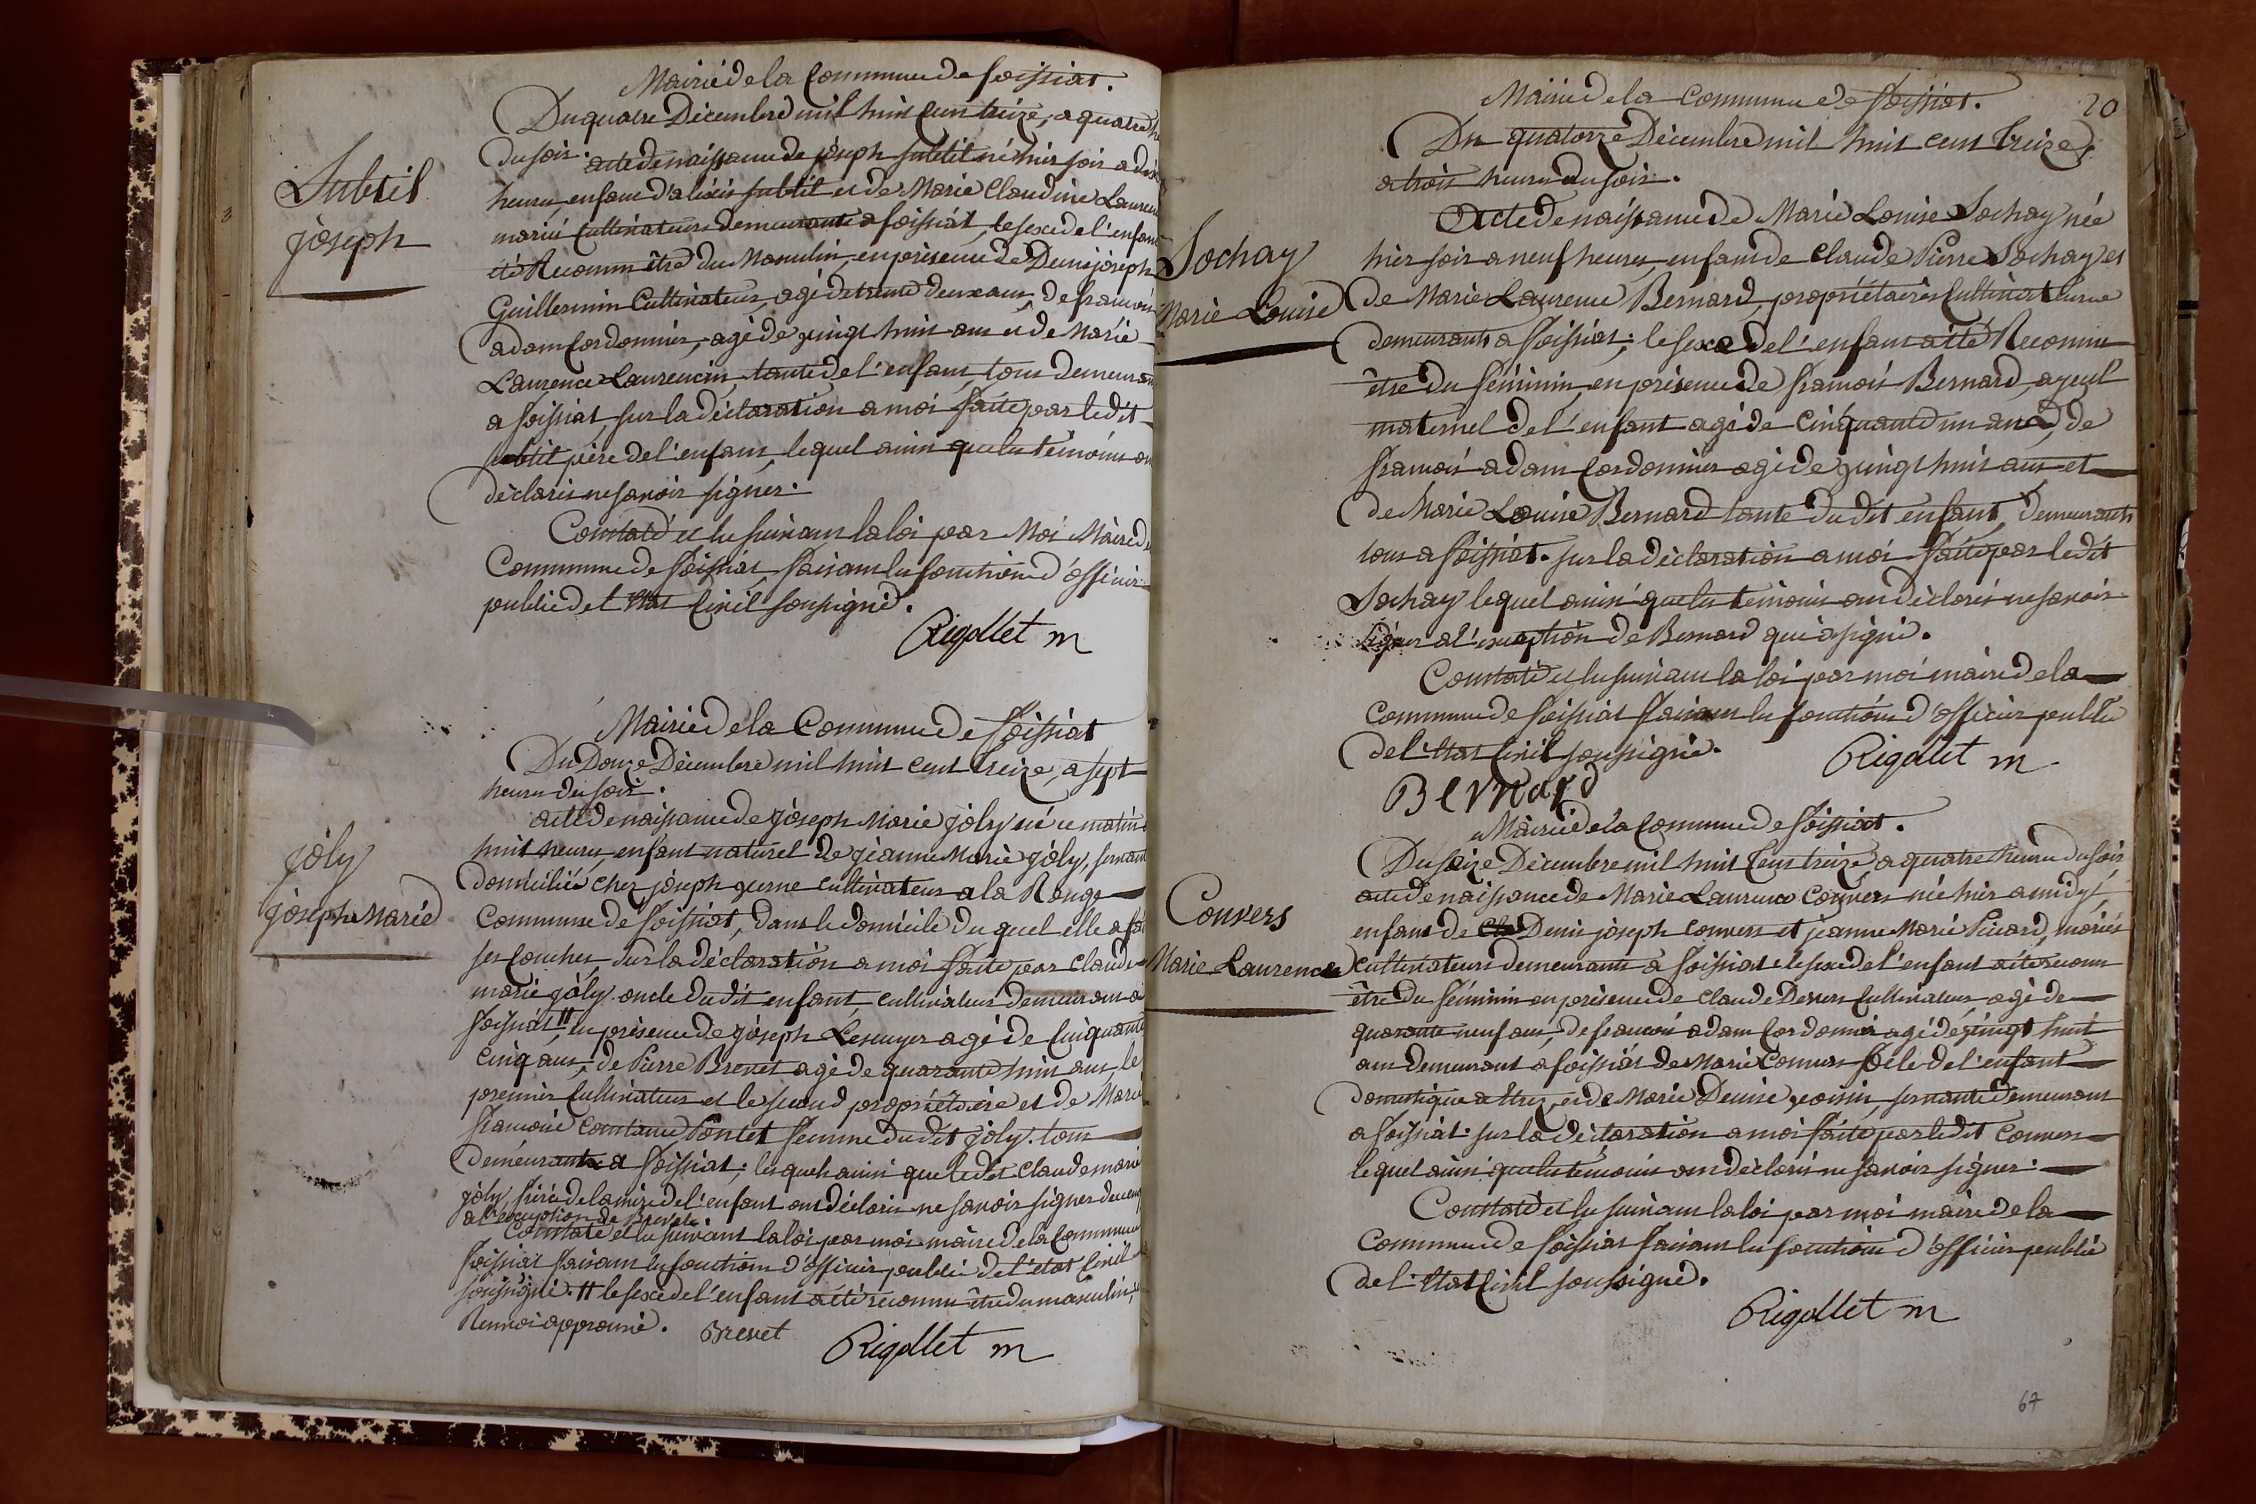 Mairie de la Commune de foissiat.
Du quatre Décembre mil huit cent treize, a quatre h
du soir. acte de naissance de joseph subtil né hier soir a dix
heures, enfant d'alexis subtil et de Marie Claudine Lauren
mariés Cultivateurs demeurants a foissiat, le sexe de l'enfant
été Reconnu être du Masculin, en présence de Denis joseph
Guillermin Cultivateur, agé de trente deux ans, de francois
adam Cordonnier, agé de vingt huit ans et de Marie
Laurence Laurencin, tante de l'enfant, tous demeurant
a foissiat, sur la déclaration a moi faite par ledit
subtil père de l'enfant, lequel ainsi que les témoins on
déclaré ne savoir signer.
Constaté et lu suivant la loi par Moi Maire de
Commune de foissiat, faisant les fonctions d'officier
public de l'état Civil soussigné.
Rigollet m
Subtil
joseph
Mairie de la Commune de foissiat
Du Douze Décembre mil huit cent treize, a sept
heures du soir.
acte de naissance de joseph Marie joly né ce matin
huit heures, enfant naturel de jeanne Marie joly, servant
domiciliée chez joseph verne cultivateur a la Rouge
Commune de foissiat, dans le domicile du quel elle a fait
ses couches, sur la déclaration a moi faite par Claude
marie joly oncle du dit enfant, cultivateur demeurant a
foissiat // en présence de joseph Lescuyer agé de Cinquante
cinq ans, de Pierre Brevet agé de quarante huit ans, le
premier Cultivateur et le second propriétaire et de Marie
francoise Constance Pontet femme du dit joly. tous
demeurants a foissiat; lesquels ainsi que ledit Claude marie
joly, frère de la mère de l'enfant ont déclaré ne savoir signer de ce enq
a l'exception de Brevet
Constaté et lu suivant la loi par moi maire de la Commune
foissiat faisant les fonctions d'officier public de l'état Civil
soussigné. // le sexe de l'enfant a été reconnu être du masculin,
Renvoi approuvé. Brevet Rigollet m
joly
joseph Marie
20
Mairie de la Commune de foissiat.
Du quatorze Décembre mil huit cent treize,
a trois heures du soir.
Acte de naissance de Marie Louise Sochay née
hier soir a neuf heures, enfant de Claude Pierre Sochay et
de Marie Laurence Bernard, propriétaires Cultivateurs
demeurants a foissiat; le sexe de l'enfant a été Reconnu
être du féminin, en présence de francois Bernard, ayeul
maternel de l'enfant agé de Cinquante un ans, de
francois adam Cordonnier agé de vingt huit ans et
de Marie Louise Bernard tante du dit enfant, demeurants
tous a foissiat. sur la déclaration a moi faite par ledit
Sochay lequel ainsi que les témoins ont déclaré ne savoir
signer a l'exception de Bernard qui a signé.
Constaté et lu suivant la loi par moi maire de la
Commune de foissiat faisant les fonctions d'officier public
de l'état Civil soussigné. Rigollet m
BERNARD
Sochay
Marie Louise
Mairie de la Commune de foissiat.
Du seize Décembre mil huit Cent treize, a quatre heures du soir,
acte de naissance de Marie Laurence Convers née hier a midy,
enfant de Denis joseph Convers et jeanne Marie Picard, mariés
cultivateurs demeurants a foissiat: le sexe de l'enfant a été reconnu
être du féminin en présence de Claude Convers Cultivateur agé de
quarante neuf ans, de francois adam Cordonnier agé de vingt huit
ans demeurant a foissiat de Marie Convers de l'enfant
domestique et de Marie Denise voisin, servante demeurant
a foissiat. sur la déclaration a moi faite par ledit Convers
lequel ainsi que les témoins ont déclaré ne savoir signer.
Constaté et lu suivant la loi par moi maire de la
Commune de foissiat faisant les fonctions d'officier public
de l'état Civil soussigné.
Rigollet m
Convers
Marie Laurence
67